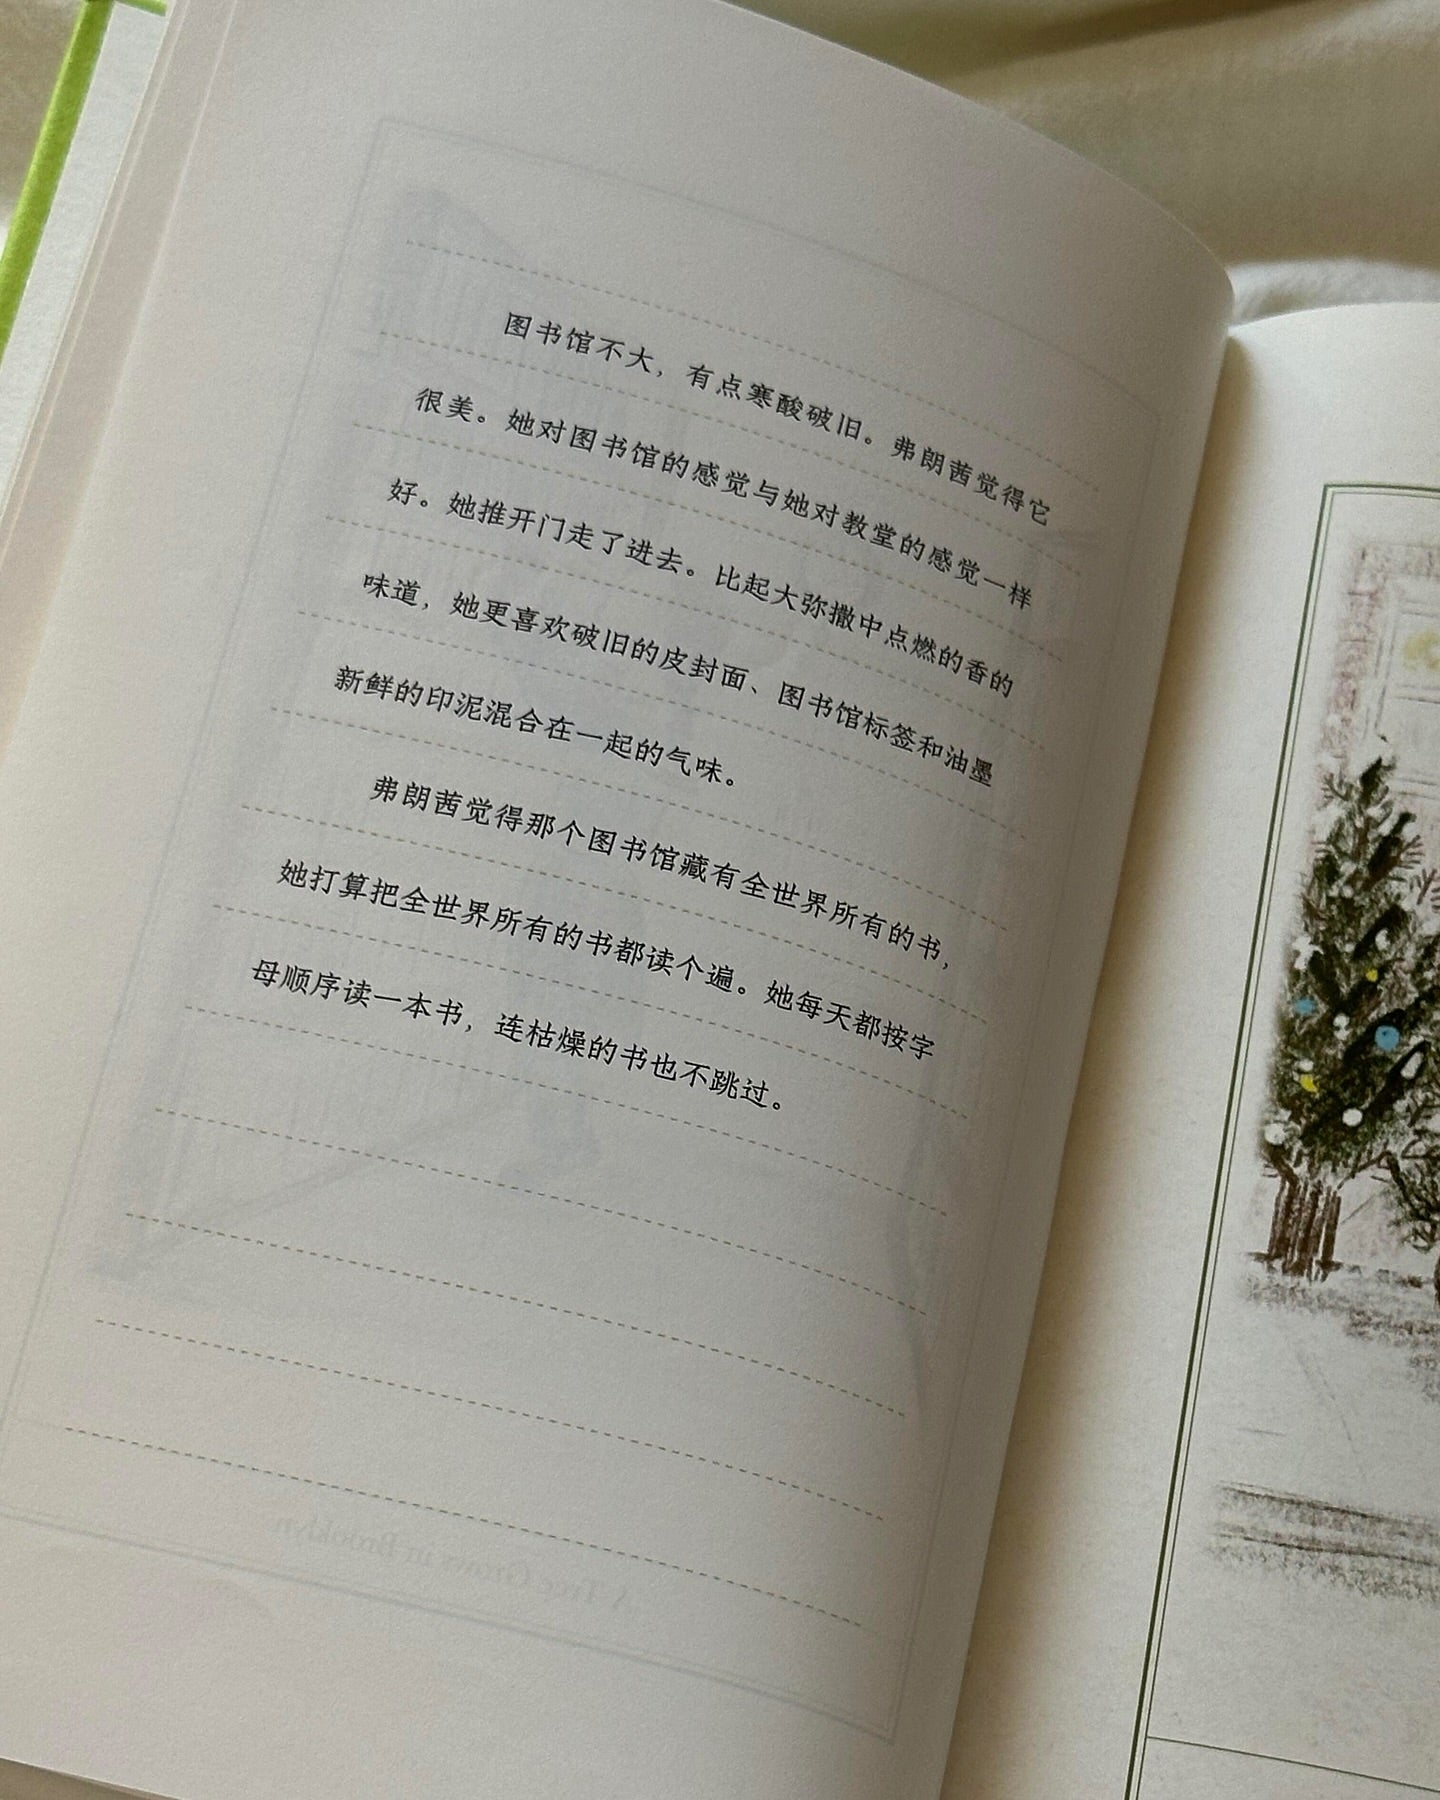 图书馆不大，有点寒酸破旧。弗朗茜觉得它
很美。她对图书馆的感觉与她对教堂的感觉一样
好。她推开门走了进去。比起大弥撒中点燃的香的
味道，她更喜欢破旧的皮封面、图书馆标签和油墨
新鲜的印泥混合在一起的气味。
弗朗茜觉得那个图书馆藏有全世界所有的书，
她打算把全世界所有的书都读个遍。她每天都按字
母顺序读一本书，连枯燥的书也不跳过。
A Tree Grows in Brooklyn